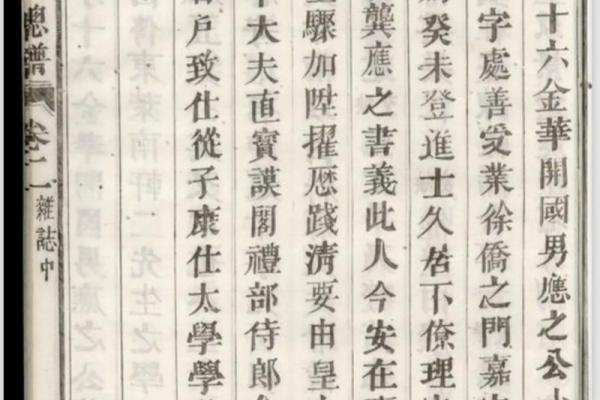 十六金華開國男應之公
字處善受業徐僑之門嘉
癸未登進士久居下僚理
龔應之書義此人今安在
驟加陞擢歷踐清要由皇
大夫直寶謨閣禮部侍郎
戶致仕從子康仕太學學
總譜 卷二 雜誌中